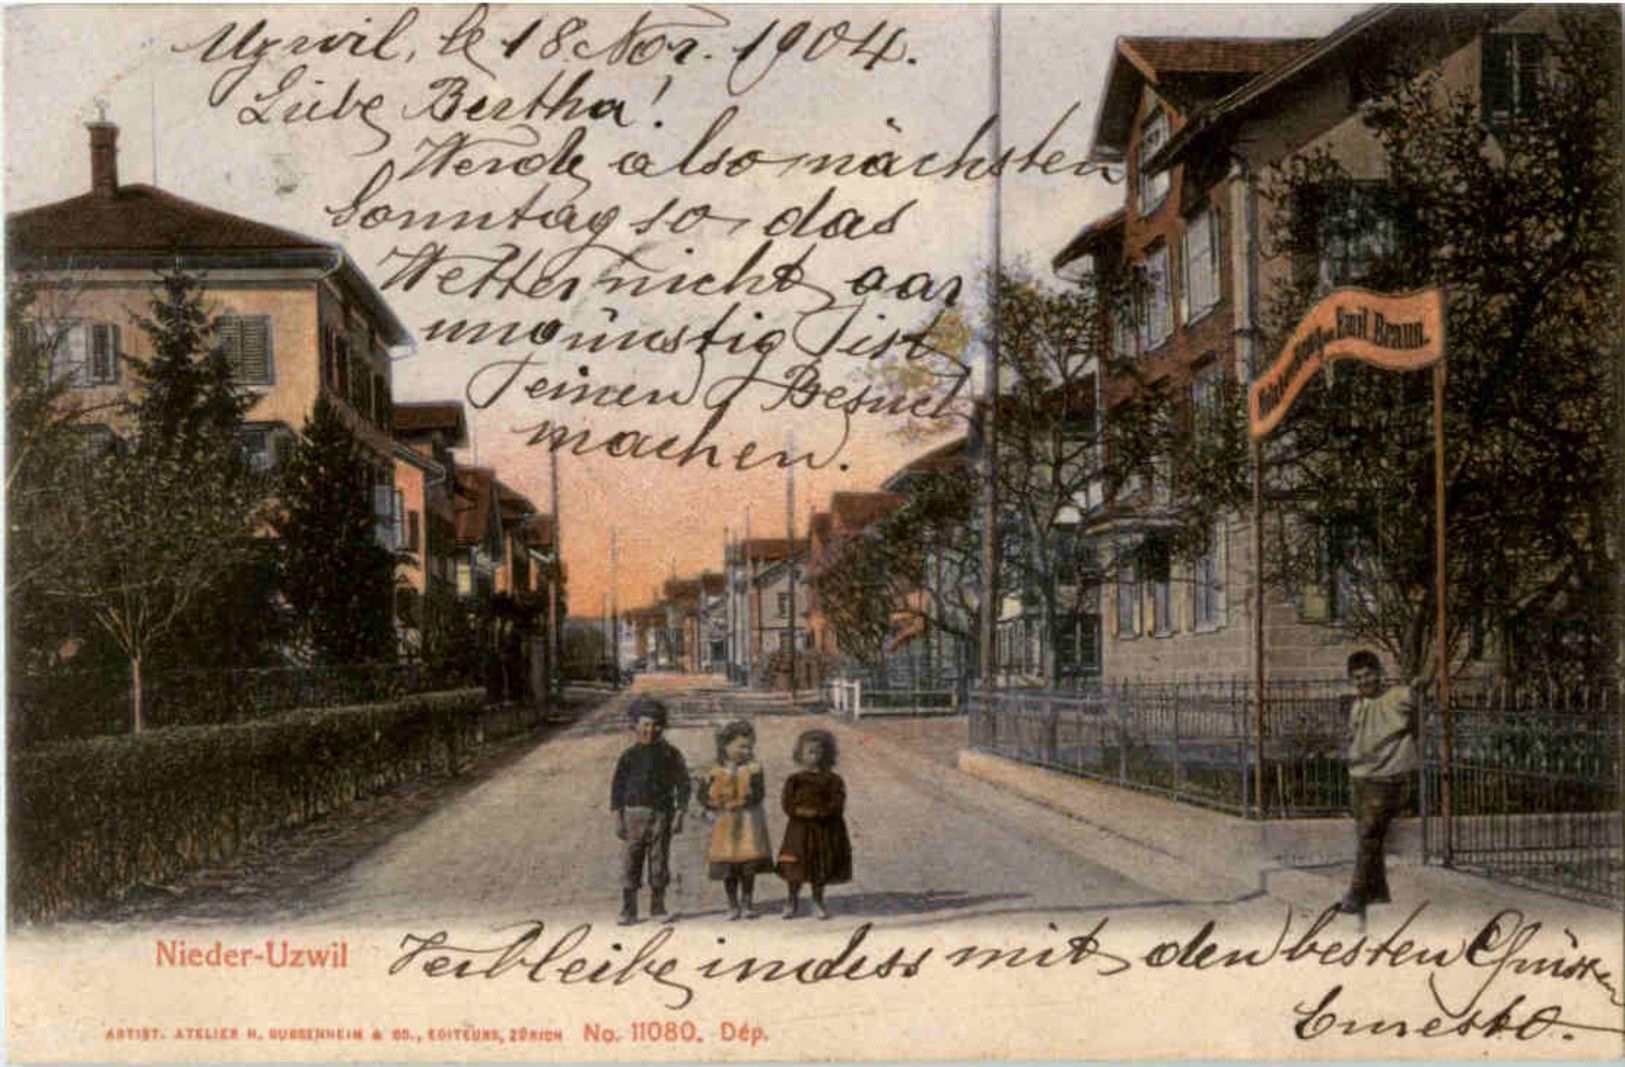 Uzwil, le 18. Nov. 1904.
Liebe Bertha!
Werde also nächsten
Sonntag so das
Wetter nicht gar
ungünstig ist
einen Besuch
machen.
Emil Braun.
Nieder-Uzwil
Verbleibe indess mit den besten Grüssen
Ernesto.
ARTIST. ATELIER H. GUGGENHEIM & CO., EDITEURS, ZÜRICH No. 11080. Dép.